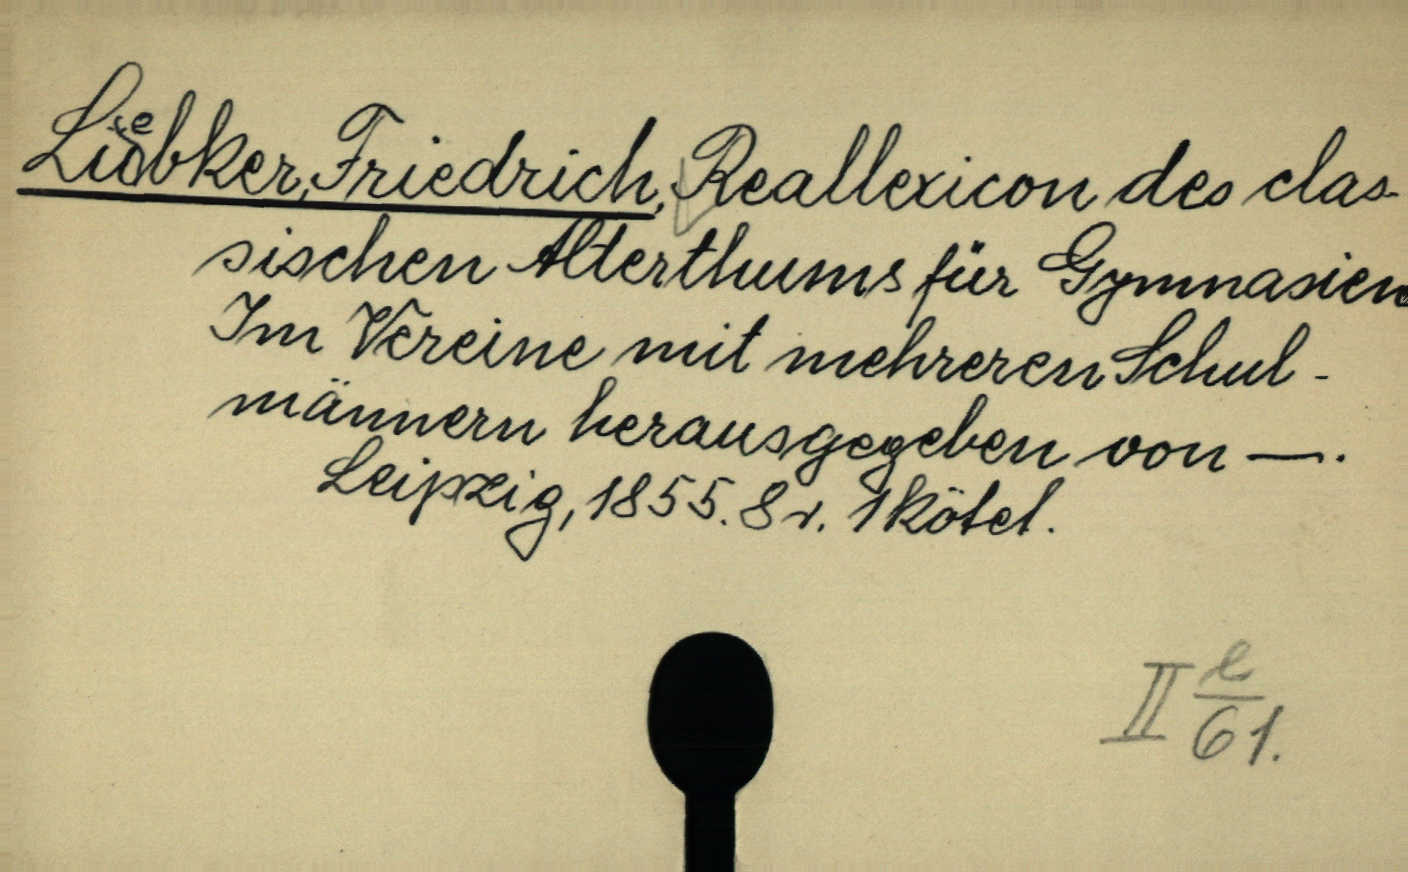 Luebker, Friedrich, Reallexicon des clas-
sischen Alterthums für Gymnasien
Im Vereine mit mehreren Schul-
männern herausgegeben von —.
Leipzig, 1855. 8r. 1 kötet.
II e/61.